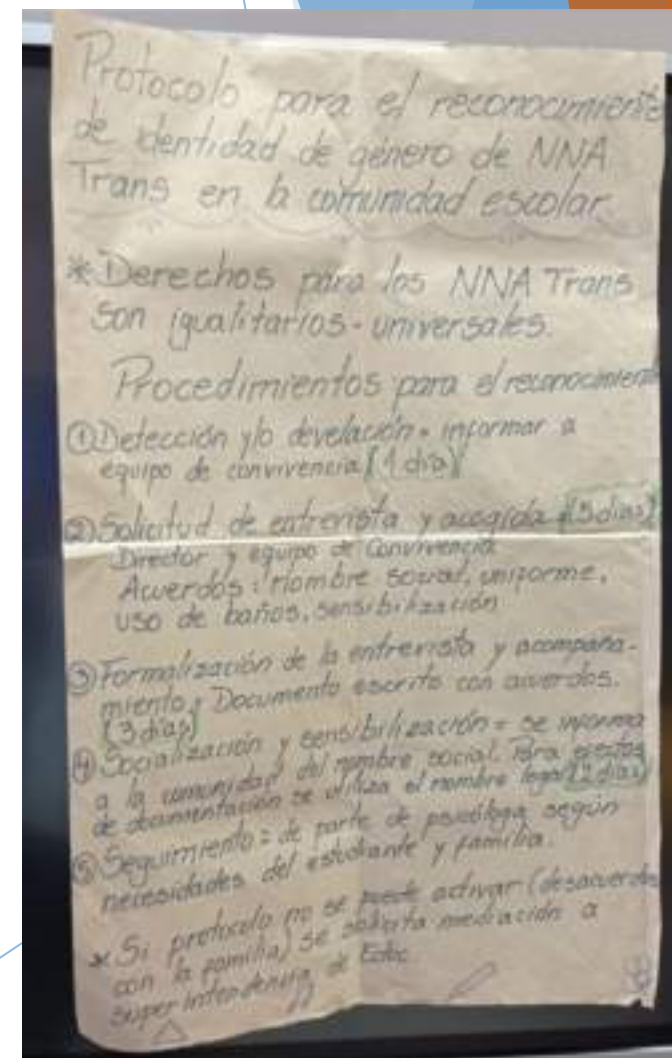 Protocolo para el reconocimiento
de identidad de género de NNA
Trans en la comunidad escolar
*Derechos para los NNA Trans
son igualitarios - universales.
Procedimientos para el reconocimiento
① Detección y/o develación = informar a
equipo de convivencia (1 día)
② Solicitud de entrevista y acogida (5 días)
Director y equipo de Convivencia
Acuerdos: nombre social, uniforme,
uso de baños, sensibilización
③ Formalización de la entrevista y acompaña-
miento, Documento escrito con acuerdos.
(3 días)
④ Socialización y sensibilización = se informa
a la comunidad del nombre social. Para efectos
de documentación se utiliza el nombre legal (2 días)
⑤ Seguimiento = de parte de psicóloga según
necesidades del estudiante y familia.
* Si protocolo no se puede activar (desacuerdos
con la familia) se solicita mediación a
superintendencia de Educ.